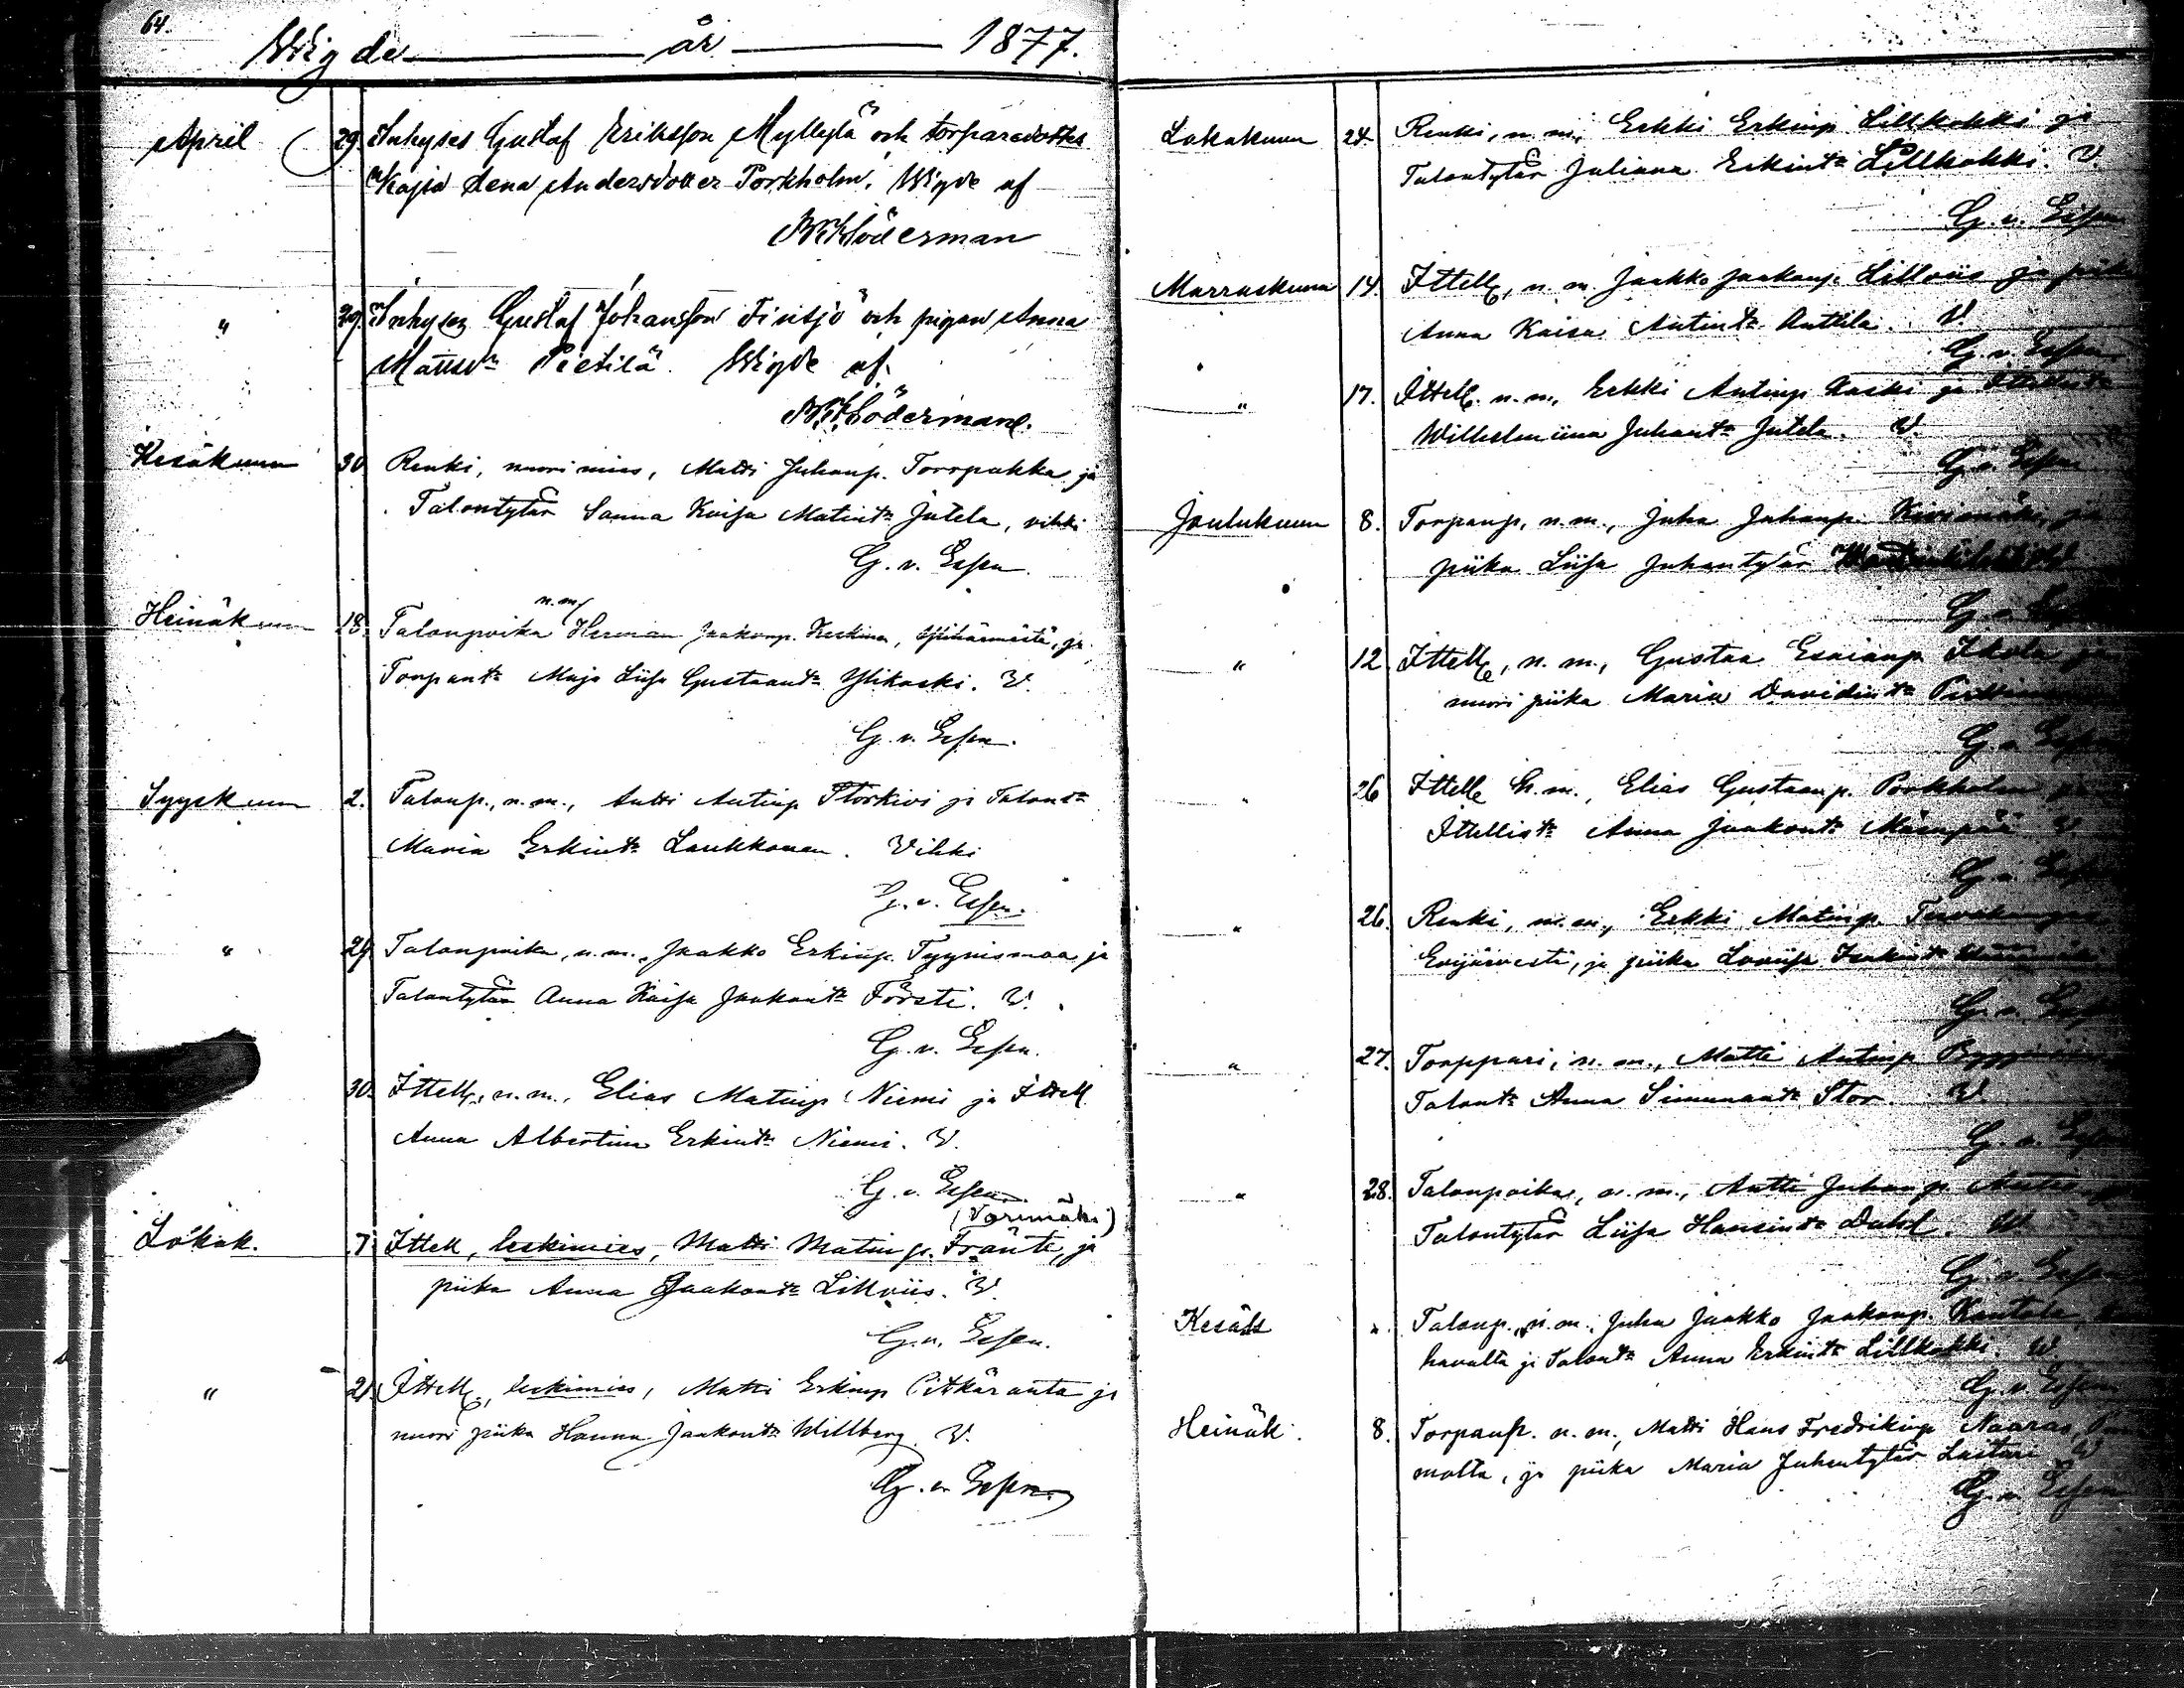 64.
Wigde år 1877.
April 29. Inhyses Gustaf Eriksson Myllylä och torparedotter
Kajsa Lena Andersdotter Porkholm. Wigde af
Söderman
" 29. Inhyses Gustaf Johansson Finsjö och pigan Anna
Mattsdr Pietilä. Wigde af
Söderman.
Kesäkuun 30 Renki, nuori mies, Matti Juhanp. Torrpakka ja
Talontytär Sanna Kaisa Matintr Jutela, vihki
G. v. Essen.
Heinäkuun 18. Talonpoika n.m. Herman Jaakonp. Keskinen, Ylihärmästä, ja
Torpantr Maja Liisa Gustaantr Ylikoski. V.
G. v. Essen.
Syyskuun 2. Talonp., n. m., Antti Antinp Storkivi ja Talontr
Maria Erkintr Laukkonen. Vihki
G. v. Essen.
" 29 Talonpoika, n. m., Jaakko Erkinp. Tyynismaa ja
Talontytär Anna Kaisa Jaakontr Försti. V.
G. v. Essen.
30. Ittell., n. m., Elias Matinp Niemi ja Ittell.
Anna Albertina Erkintr Niemi. V.
G. v. Essen.
(Varimäki)
Lokak. 7 Ittell, leskimies, Matti Matinp. Fränte, ja
piika Anna Jaakontr Lillviis. V.
G. v. Essen.
" 21. Ittell., leskimies, Matti Erkinp Pitkäranta ja
nuori piika Hanna Jaakontr Willberg. V.
G. v. Essen.
Lokakuun 24. Renki, n. m., Erkki Erkinp Lillkakki ja
Talontytär Juliana Erkintr Lillkakki. V.
G. v. Essen
Marraskuun 14. Ittell., n. m. Jaakko Jaakonp. Lillviis ja piika
Anna Kaisa Antintr Anttila. V.
G. v. Essen.
" 17. Ittell. n. m., Erkki Antinp Kaski ja
Wilhelmiina Juhantr Jutela. V.
G. v. Essen
Joulukuun 8. Torpanp, n. m., Juha Juhanp. ja
piika Liisa Juhantytär
G. v. Essen
" 12. Ittell., n. m., Gustaa Esaianp Ikola ja
nuori piika Maria Davidintr
G. v. Essen
" 26 Ittell n. m., Elias Gustaanp. Porkholm ja
Ittellistr Anna Jaakontr Mäenpää V
G. v. Essen
" 26. Renki, n. m., Erkki Matinp.
Evijärvestä, ja piika Loviisa
G. v. Essen
" 27. Torppari, n. m., Matti Antinp
Talontr Anna Simunantr Stor. V.
G. v. Essen
" 28. Talonpoika, n. m., Antti Juhanp.
Talontytär Liisa Hansintr Dahl. V.
G. v. Essen
Kesäk ". Talonp., n. m., Juha Jaakko Jaakonp. Kantola,
havalta ja Talontr Anna Erkintr Lillkakki. V.
G. v. Essen
Heinäk. 8. Torpanp. n. m., Matti Hans Fredrikinp Naaras,
molta, ja piika Maria Juhantytär Lastari. V
G. v. Essen